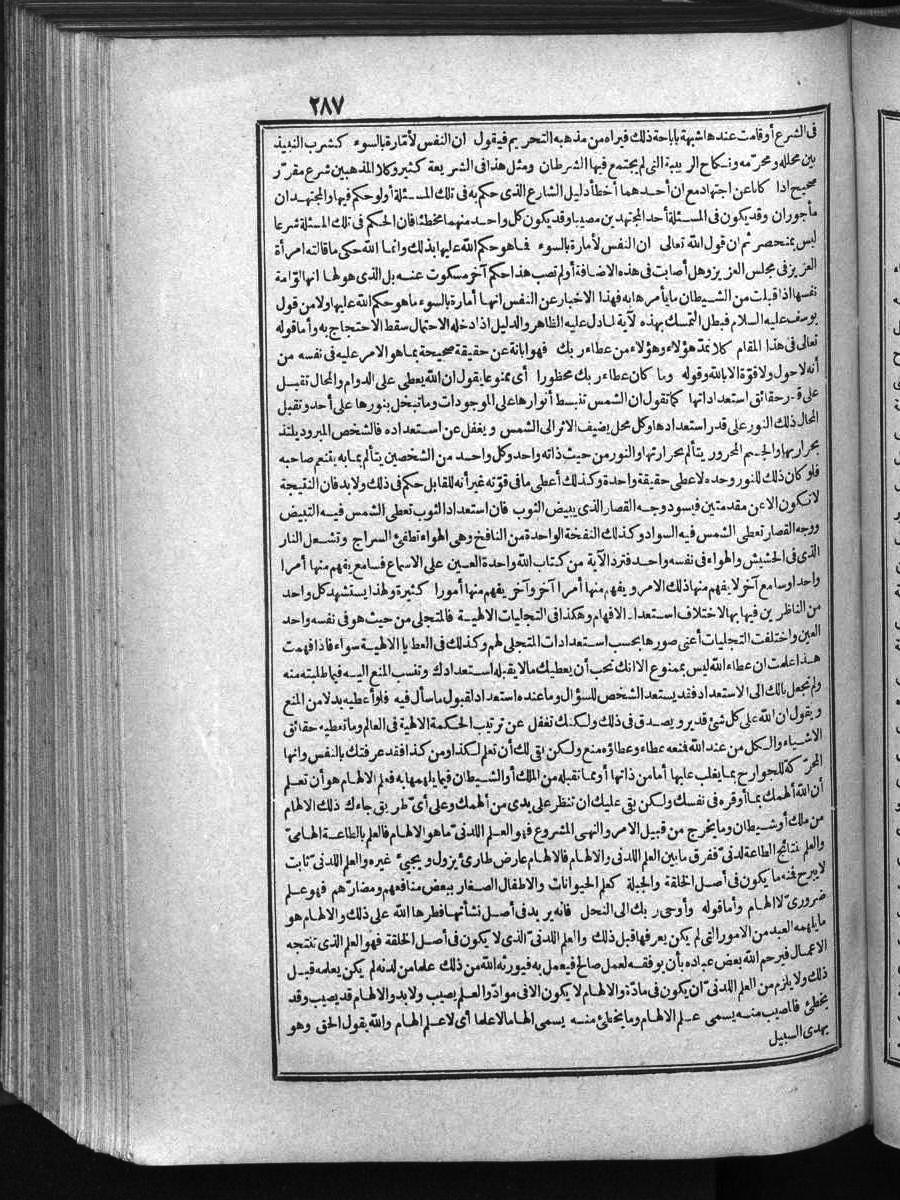 ٢٨٧
فى الشرع أو قامت عندها شبهة باباحة ذلك فيراه من مذهبه التحريم فيقول ان النفس لأمّارة بالسوء كشرب النبيذ
بين محلله ومحرّمه ونكاح الربيبة التى لم يجتمع فيها الشرطان ومثل هذا فى الشريعة كثير وكلا المذهبين شرع مقرّر
صحيح اذا كانا عن اجتهاد مع ان أحدهما أخطأ دليل الشارع الذى حكم به فى تلك المسئلة أولو حكم فيها والمجتهدان
مأجوران وقد يكون فى المسئلة أحد المجتهدين مصيبا وقد يكون كل واحد منهما مخطئا فان الحكم فى تلك المسئلة شرعا
ليس بمنحصر ثم ان قول الله تعالى ان النفس لأمارة بالسوء فما هو حكم الله عليها بذلك وانما الله حكى ما قالته امرأة
العزيز فى مجلس العزيز وهل أصابت فى هذه الاضافة أو لم تصب هذا حكم آخر مسكوت عنه بل الذى هو لها انها لوّامة
نفسها اذا قبلت من الشيطان ما يأمرها به فهذا الاخبار عن النفس انها أمارة بالسوء ما هو حكم الله عليها ولا من قول
يوسف عليه السلام فبطل التمسك بهذه لآية لما دل عليه الظاهر والدليل اذا دخله الاحتمال سقط الاحتجاج به وأما قوله
تعالى فى هذا المقام كلا نمدّ هؤلاء وهؤلاء من عطاء ربك فهو ابانة عن حقيقة صحيحة بما هو الامر عليه فى نفسه من
أنه لا حول ولا قوّة الا بالله وقوله وما كان عطاء ربك محظورا أى ممنوعا يقول ان الله يعطى على الدوام والمحال تقبل
على قدر حقائق استعداداتها كما تقول ان الشمس تنبسط أنوارها على الموجودات وما تبخل بنورها على أحد وتقبل
المحال ذلك النور على قدر استعدادها وكل محل يضيف الاثر الى الشمس ويغفل عن استعداده فالشخص المبرود يلتذ
بحرارتها والجسم المحرور يتألم بحرارتها والنور من حيث ذاته واحد وكل واحد من الشخصين يتألم بما به يتنعم صاحبه
فلو كان ذلك للنور وحده لاعطى حقيقة واحدة وكذلك أعطى ما فى قوّته غير أنه للقابل حكم فى ذلك ولا بد فان النتيجة
لا تكون الا عن مقدمتين فيسود وجه القصار الذى يبيض الثوب فان استعداد الثوب تعطى الشمس فيه التبييض
ووجه القصار تعطى الشمس فيه السواد وكذلك النفخة الواحدة من النافخ وهى الهواء تطفئ السراج وتشعل النار
الذى فى الحشيش والهواء فى نفسه واحد فترد الآية من كتاب الله واحدة العين على الاسماع فسامع يفهم منها أمرا
واحدا وسامع آخر لا يفهم منها ذلك الامر ويفهم منها أمرا آخر وآخر يفهم منها أمورا كثيرة ولهذا يستشهد كل واحد
من الناظرين فيها بها لاختلاف استعداد الافهام وهكذا فى التجليات الالهية فالمتجلى من حيث هو فى نفسه واحد
العين واختلفت التجليات أعنى صورها بحسب استعدادات المتجلى لهم وكذلك فى العطايا الالهية سواء فاذا فهمت
هذا علمت ان عطاء الله ليس بممنوع الا انك تحب أن يعطيك ما لا يقبله استعدادك وتنسب المنع اليه فيما طلبته منه
ولم تجعل بالك الى الاستعداد فقد يستعد الشخص للسؤال وما عنده استعداد لقبول ما سأل فيه فلو أعطيه بدلا من المنع
ويقول ان الله على كل شئ قدير ويصدق فى ذلك ولكنك تغفل عن ترتيب الحكمة الالهية فى العالم وما تعطيه حقائق
الاشياء والكل من عند الله فمنعه عطاء وعطاؤه منع ولكن بقى لك أن تعلم لكذا ومن كذا فقد عرفتك بالنفس وانها
المحرّكة للجوارح بما يغلب عليها أما من ذاتها أو مما تقبله من الملك أو الشيطان فيما يلهمها به فعلم الالهام هو أن تعلم
أن الله ألهمك بما أوقره فى نفسك ولكن بقى عليك ان تنظر على يدى من ألهمك وعلى أىّ طريق جاءك ذلك الالهام
من ملك أو شيطان وما يخرج من قبيل الامر والنهى المشروع فهو العلم اللدنىّ ما هو الالهام فالعلم بالطاعة الهامىّ
والعلم بنتائج الطاعة لدنىّ ففرق ما بين العلم اللدنى والالهام فالالهام عارض طارئ يزول ويجئ غيره والعلم اللدنىّ ثابت
لا يبرح فمنه ما يكون فى أصل الخلقة والجبلة كعلم الحيوانات والاطفال الصغار ببعض منافعهم ومضارّهم فهو علم
ضرورىّ لا الهام وأما قوله وأوحى ربك الى النحل فانه يريد فى أصل نشأتها فطرها الله على ذلك والالهام هو
ما يلهمه العبد من الامور التى لم يكن يعرفها قبل ذلك والعلم اللدنىّ الذى لا يكون فى أصل الخلقة فهو العلم الذى تنتجه
الاعمال فيرحم الله بعض عباده بأن يوفقه لعمل صالح فيعمل به فيورثه الله من ذلك علما من لدنه لم يكن يعلمه قبل
ذلك ولا يلزم من العلم اللدنىّ ان يكون فى مادّة والالهام لا يكون الا فى موادّ والعلم يصيب ولا بد والالهام قد يصيب وقد
يخطئ فالمصيب منه يسمى علم الالهام وما يخطئ منه يسمى الهاما لا علما أى لا علم الهام والله يقول الحق وهو
يهدى السبيل